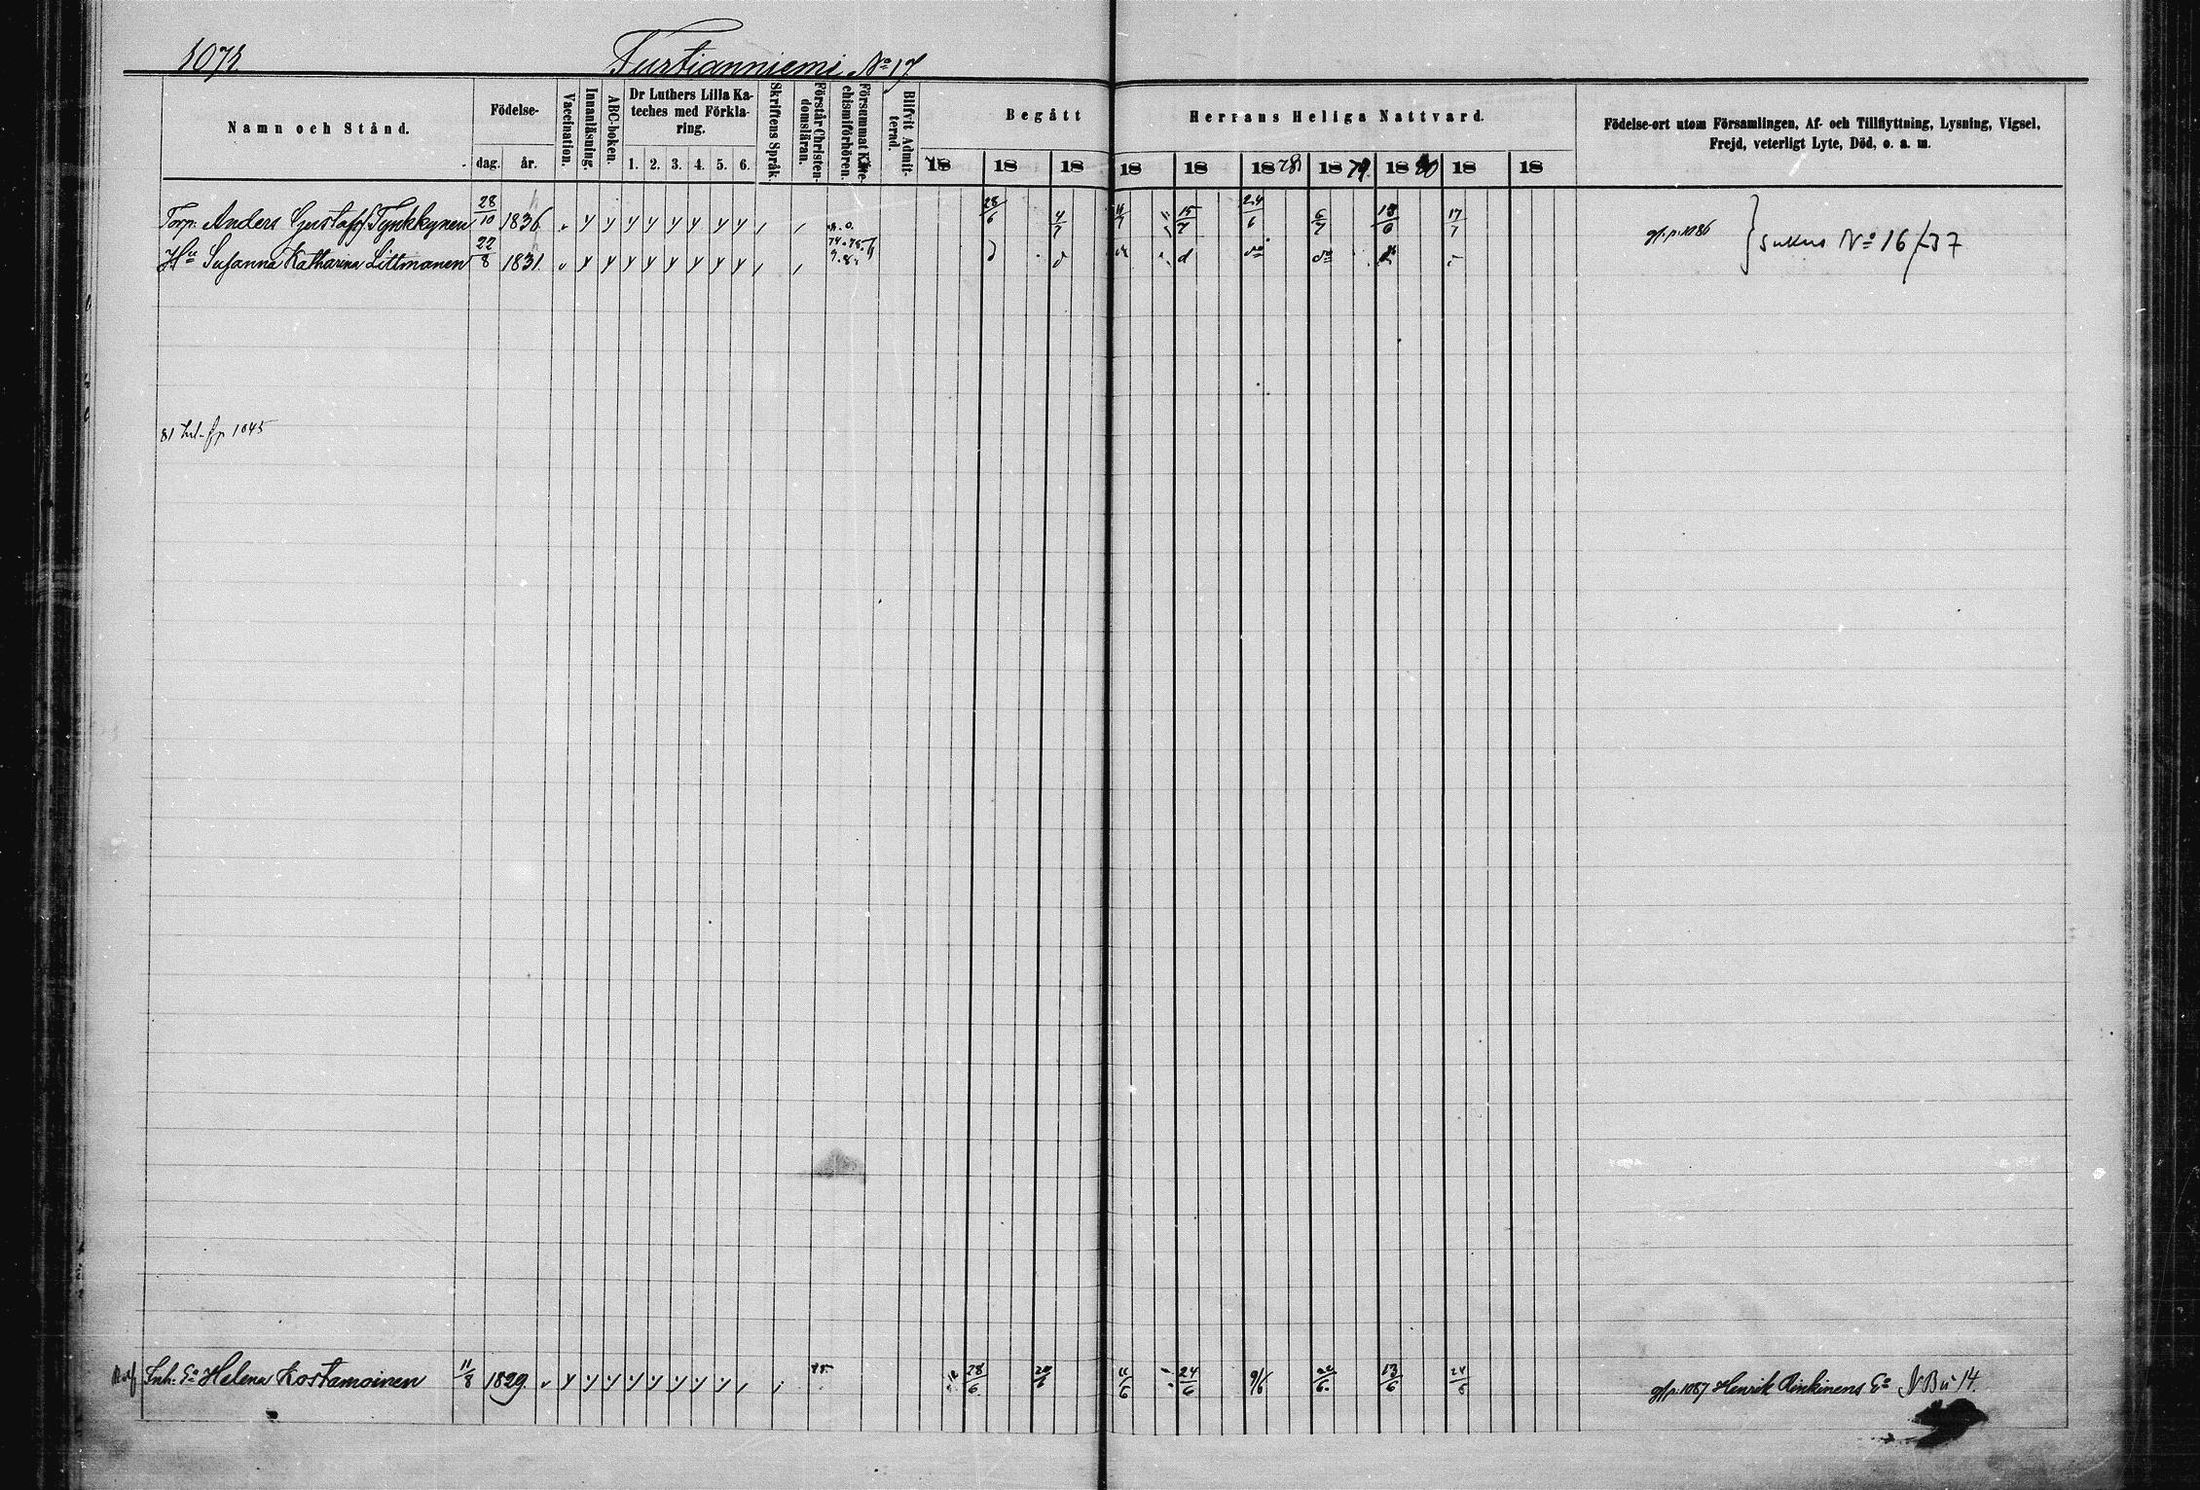 1071
Turtianniemi No 17
Namn och Stånd.
Födelse-
dag.
år.
Vaccination.
Innanläsning.
ABC-boken.
Dr Luthers Lilla Ka-
teches med Förkla-
ring.
1. 2. 3. 4. 5. 6.
Skriftens Språk.
Förstår Christen-
domsläran.
Försummat Kate-
chismiförhören.
Blifvit Admit-
terad.
Begått Herrans Heliga Nattvard.
18 18 18 18 18 1878 1879 1880 18 18
Födelse-ort utom Församlingen, Af- och Tillflyttning, Lysning, Vigsel,
Frejd, veterligt Lyte, Död, o. a. m.
Torp. Anders Gustaffsf. Tynkkynen 28/10 1836 y y y y y y y y 28/6 4/7 15/7 24/6 6/7 13/6 17/7 gf.p. 1086
Hu Susanna Katharina Littmanen 22/8 1831 y y y y y y y y d d do do
} Sukus No 16/37
1045
Inh. Ea Helena Kostamoinen 11/8 1829 y y y y y y y y 28/6 11/6 24/6 9/6 13/6 24/6 gf.p. 1087 Henrik Rinkinens Ea